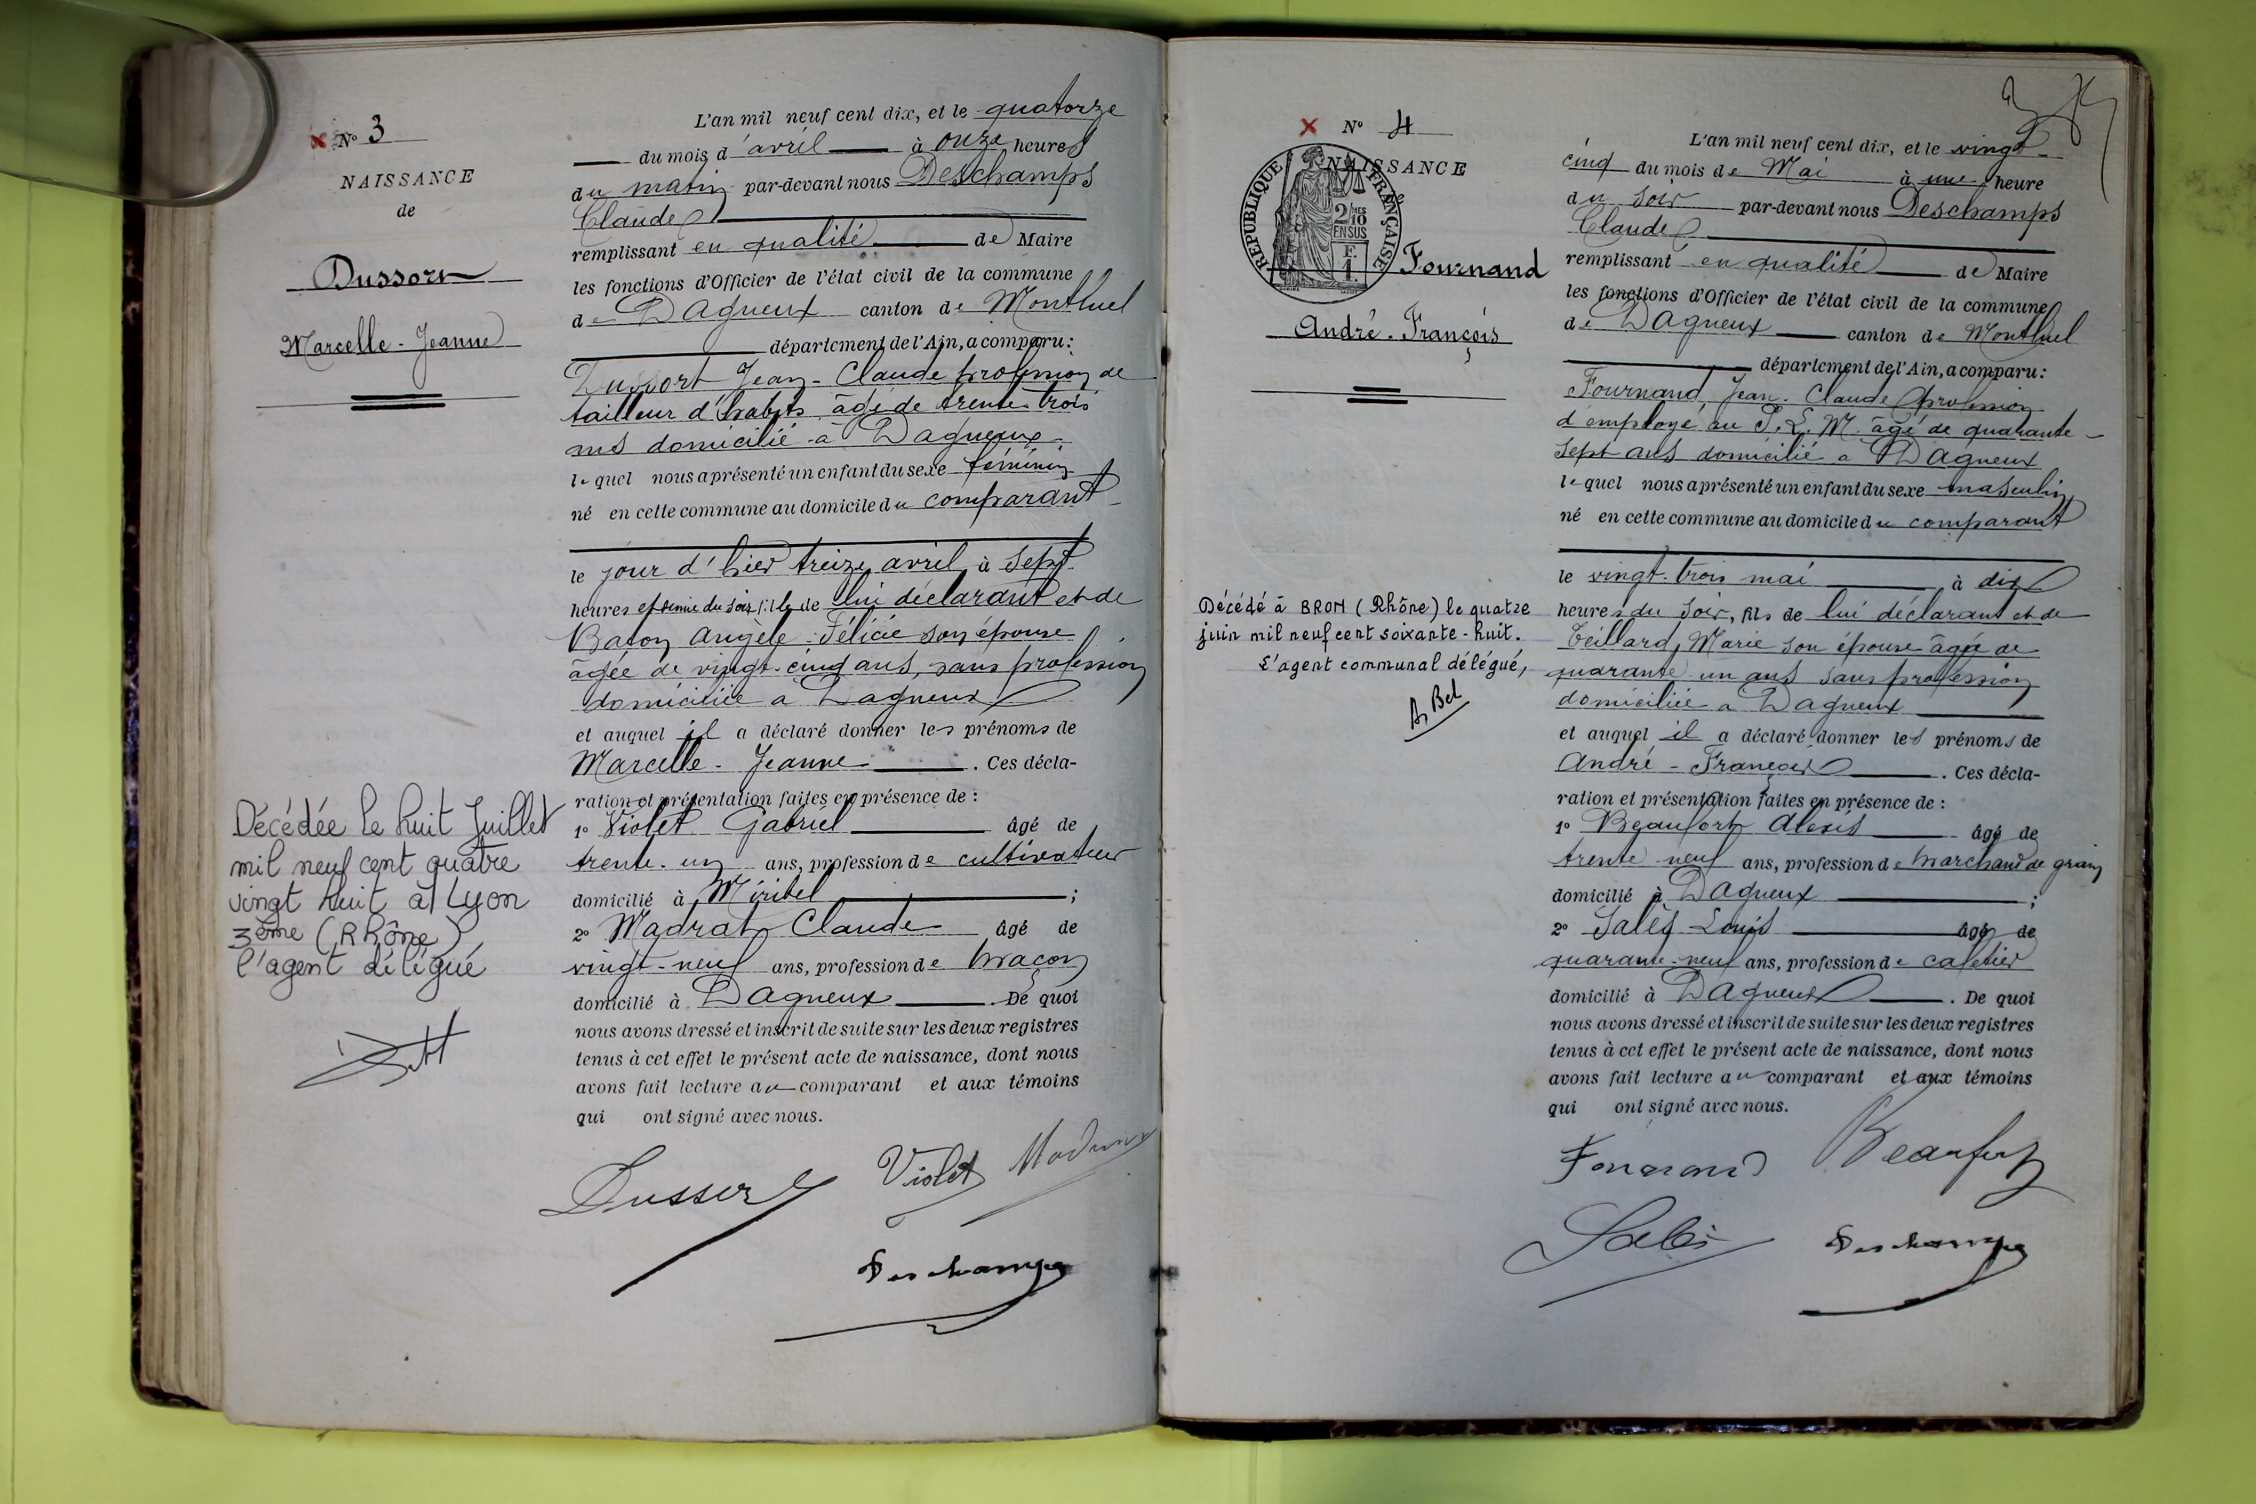 N° 3
NAISSANCE
de
Dussort
Marcelle - Jeanne
Décédée le huit Juillet
mil neuf cent quatre
vingt huit à Lyon
3ème (Rhône)
l'agent délégué
L'an mil neuf cent dix, et le quatorze
du mois d'avril à onze heures
du matin par-devant nous Deschamps
Claude
remplissant en qualité de Maire
les fonctions d'Officier de l'état civil de la commune
de Dagneux canton de Montluel
département de l'Ain, a comparu:
Dussort Jean - Claude profession de
tailleur d'habits âgé de trente trois
ans domicilié à Dagneux
lequel nous a présenté un enfant du sexe féminin
né en cette commune au domicile du comparant
le jour d'hier treize avril à sept
heures et demie du soir, fille de lui déclarant et de
Baton Angèle - Félicie son épouse
âgée de vingt-cinq ans, sans profession
domiciliée à Dagneux
et auquel il a déclaré donner les prénoms de
Marcelle - Jeanne . Ces décla-
ration et présentation faites en présence de :
1° Violet Gabriel âgé de
trente-un ans, profession de cultivateur
domicilié à Miribel ;
2° Madrat Claude âgé de
vingt-neuf ans, profession de maçon
domicilié à Dagneux . De quoi
nous avons dressé et inscrit de suite sur les deux registres
tenus à cet effet le présent acte de naissance, dont nous
avons fait lecture au comparant et aux témoins
qui ont signé avec nous.
Dussort Violet Madrat
Deschamps
N° 4
NAISSANCE
RÉPUBLIQUE FRANÇAISE
2/10
EN SUS
Fournand
André - François
Décédé à BRON (Rhône) le quatre
juin mil neuf cent soixante-huit.
L'agent communal délégué,
A. Bel
L'an mil neuf cent dix, et le vingt-
cinq du mois de Mai à une heure
du soir par-devant nous Deschamps
Claude
remplissant en qualité de Maire
les fonctions d'Officier de l'état civil de la commune
de Dagneux canton de Montluel
département de l'Ain, a comparu:
Fournand Jean - Claude profession
d'employé au P. L. M. âgé de quarante-
sept ans domicilié à Dagneux
lequel nous a présenté un enfant du sexe masculin
né en cette commune au domicile du comparant
le vingt-trois mai à dix
heures du soir, fils de lui déclarant et de
Teillard Marie son épouse âgée de
quarante un ans sans profession
domiciliée à Dagneux
et auquel il a déclaré donner les prénoms de
André - François . Ces décla-
ration et présentation faites en présence de :
1° Beaufort Alexis âgé de
trente-neuf ans, profession de marchand de grains
domicilié à Dagneux ;
2° Salès Louis âgé de
quarante-neuf ans, profession de cafetier
domicilié à Dagneux . De quoi
nous avons dressé et inscrit de suite sur les deux registres
tenus à cet effet le présent acte de naissance, dont nous
avons fait lecture au comparant et aux témoins
qui ont signé avec nous.
Fournand Beaufort
Salès Deschamps